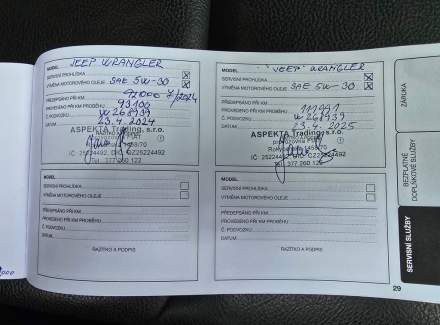 MODEL JEEP WRANGLER
SERVISNÍ PROHLÍDKA
VÝMĚNA MOTOROVÉHO OLEJE SAE 5W-30
PŘEDEPSÁNO PŘI KM
PROVEDENO PŘI KM PROBĚHU 93100
Č. PODVOZKU W268939
DATUM 23.4.2024
ASPEKTA Trading, s.r.o.
IČ: 25224492, DIČ: CZ25224492
Tel. 377 260 122
MODEL JEEP WRANGLER
SERVISNÍ PROHLÍDKA
VÝMĚNA MOTOROVÉHO OLEJE SAE 5W-30
PŘEDEPSÁNO PŘI KM
PROVEDENO PŘI KM PROBĚHU
Č. PODVOZKU W268939
DATUM 23.4.2025
ASPEKTA Trading s.r.o.
IČ: 25224492, DIČ: CZ25224492
Tel. 377 260 122
MODEL
SERVISNÍ PROHLÍDKA
VÝMĚNA MOTOROVÉHO OLEJE
PŘEDEPSÁNO PŘI KM
PROVEDENO PŘI KM PROBĚHU
Č. PODVOZKU
DATUM
RAZÍTKO A PODPIS
MODEL
SERVISNÍ PROHLÍDKA
VÝMĚNA MOTOROVÉHO OLEJE
PŘEDEPSÁNO PŘI KM
PROVEDENO PŘI KM PROBĚHU
Č. PODVOZKU
DATUM
RAZÍTKO A PODPIS
ZÁRUKA
BEZPLATNÉ
DOPLŇKOVÉ SLUŽBY
SERVISNÍ SLUŽBY
29